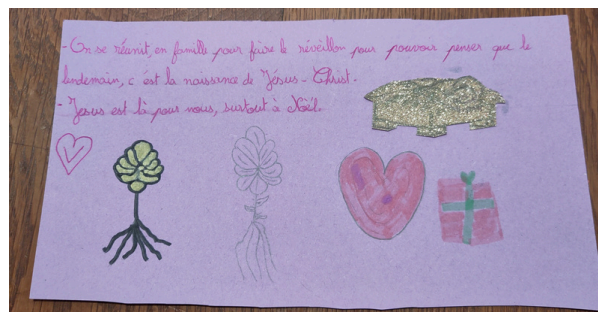 - On se réanit, en famille pour faire le réveillon pour pouvoir penser que le
lendemain, c'est la naissance de Jésus - Christ.
- Jésus est là pour nous, surtout à Noël.